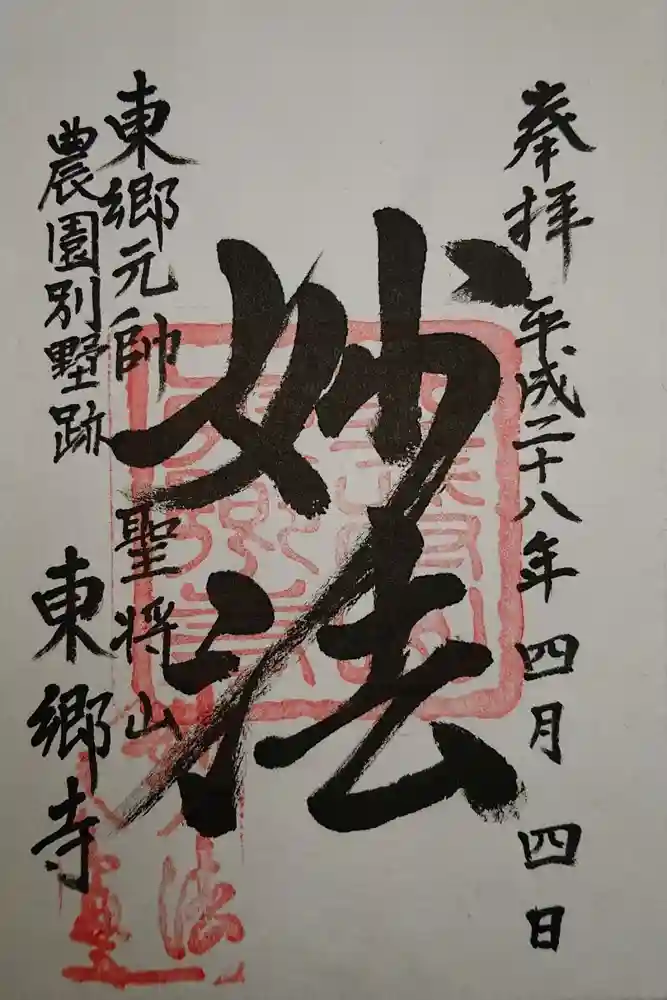 奉拝 平成二十八年 四月 四日
妙法
東郷元帥 聖将山
農園別墅跡
東郷寺